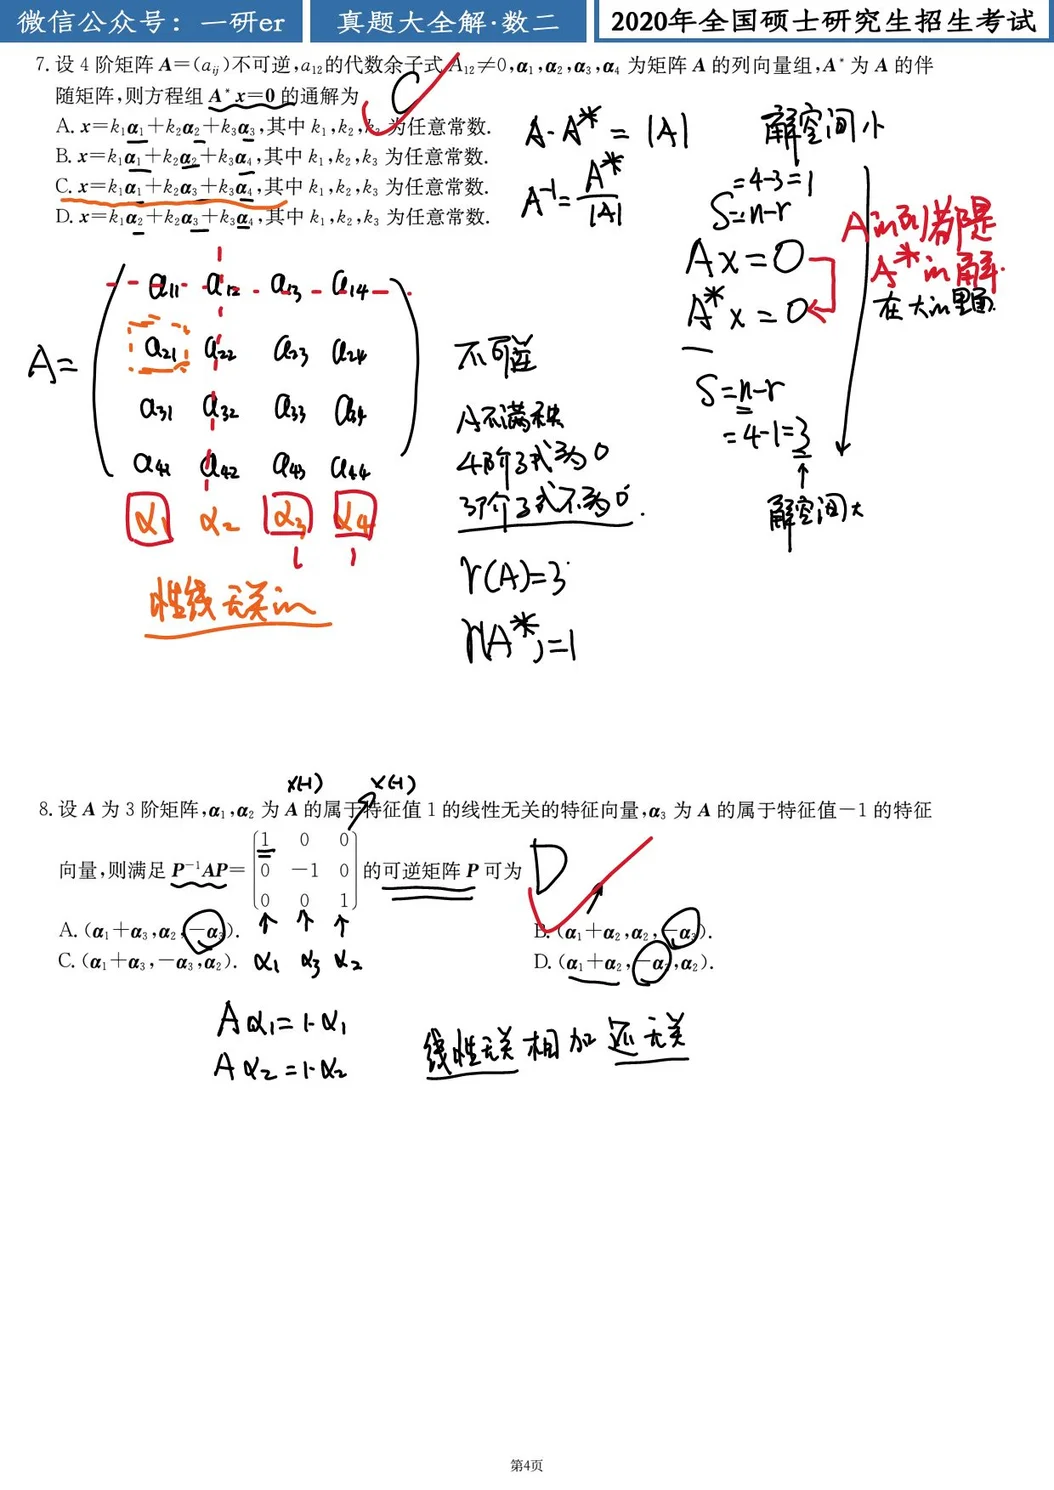 微信公众号：一研er
真题大全解·数二
2020年全国硕士研究生招生考试
7. 设 4 阶矩阵 A=(aᵢⱼ)不可逆,a₁₂的代数余子式 A₁₂≠0,α₁,α₂,α₃,α₄ 为矩阵 A 的列向量组,A* 为 A 的伴
随矩阵,则方程组 A*x=0 的通解为
C
A. x=k₁α₁+k₂α₂+k₃α₃,其中 k₁,k₂,k₃ 为任意常数.
B. x=k₁α₁+k₂α₂+k₃α₄,其中 k₁,k₂,k₃ 为任意常数.
C. x=k₁α₁+k₂α₃+k₃α₄,其中 k₁,k₂,k₃ 为任意常数.
D. x=k₁α₂+k₂α₃+k₃α₄,其中 k₁,k₂,k₃ 为任意常数.
A·A* = |A|
A⁻¹= A*/|A|
解空间小
=4-3=1
S=n-r
Ax=0
A*x=0
A的列都是
A*的解.
在大的里面
S=n-r
=4-1=3
解空间大
A=
a₁₁ a₁₂ a₁₃ a₁₄
a₂₁ a₂₂ a₂₃ a₂₄
a₃₁ a₃₂ a₃₃ a₃₄
a₄₁ a₄₂ a₄₃ a₄₄
α₁ α₂ α₃ α₄
性线无关的
不可逆
A不满秩
4阶子式为0
3阶子式不为0.
r(A)=3
r(A*)=1
x(-1) x(-1)
8. 设 A 为 3 阶矩阵,α₁,α₂ 为 A 的属于特征值 1 的线性无关的特征向量,α₃ 为 A 的属于特征值−1 的特征
1 0 0
向量,则满足 P⁻¹AP= 0 −1 0 的可逆矩阵 P 可为
0 0 1
D
A. (α₁+α₃,α₂,−α₃).
B. (α₁+α₂,α₂,−α₃).
C. (α₁+α₃,−α₃,α₂).
D. (α₁+α₂,−α₃,α₂).
α₁ α₃ α₂
Aα₁=1·α₁
Aα₂=1·α₂
线性无关相加还无关
第4页